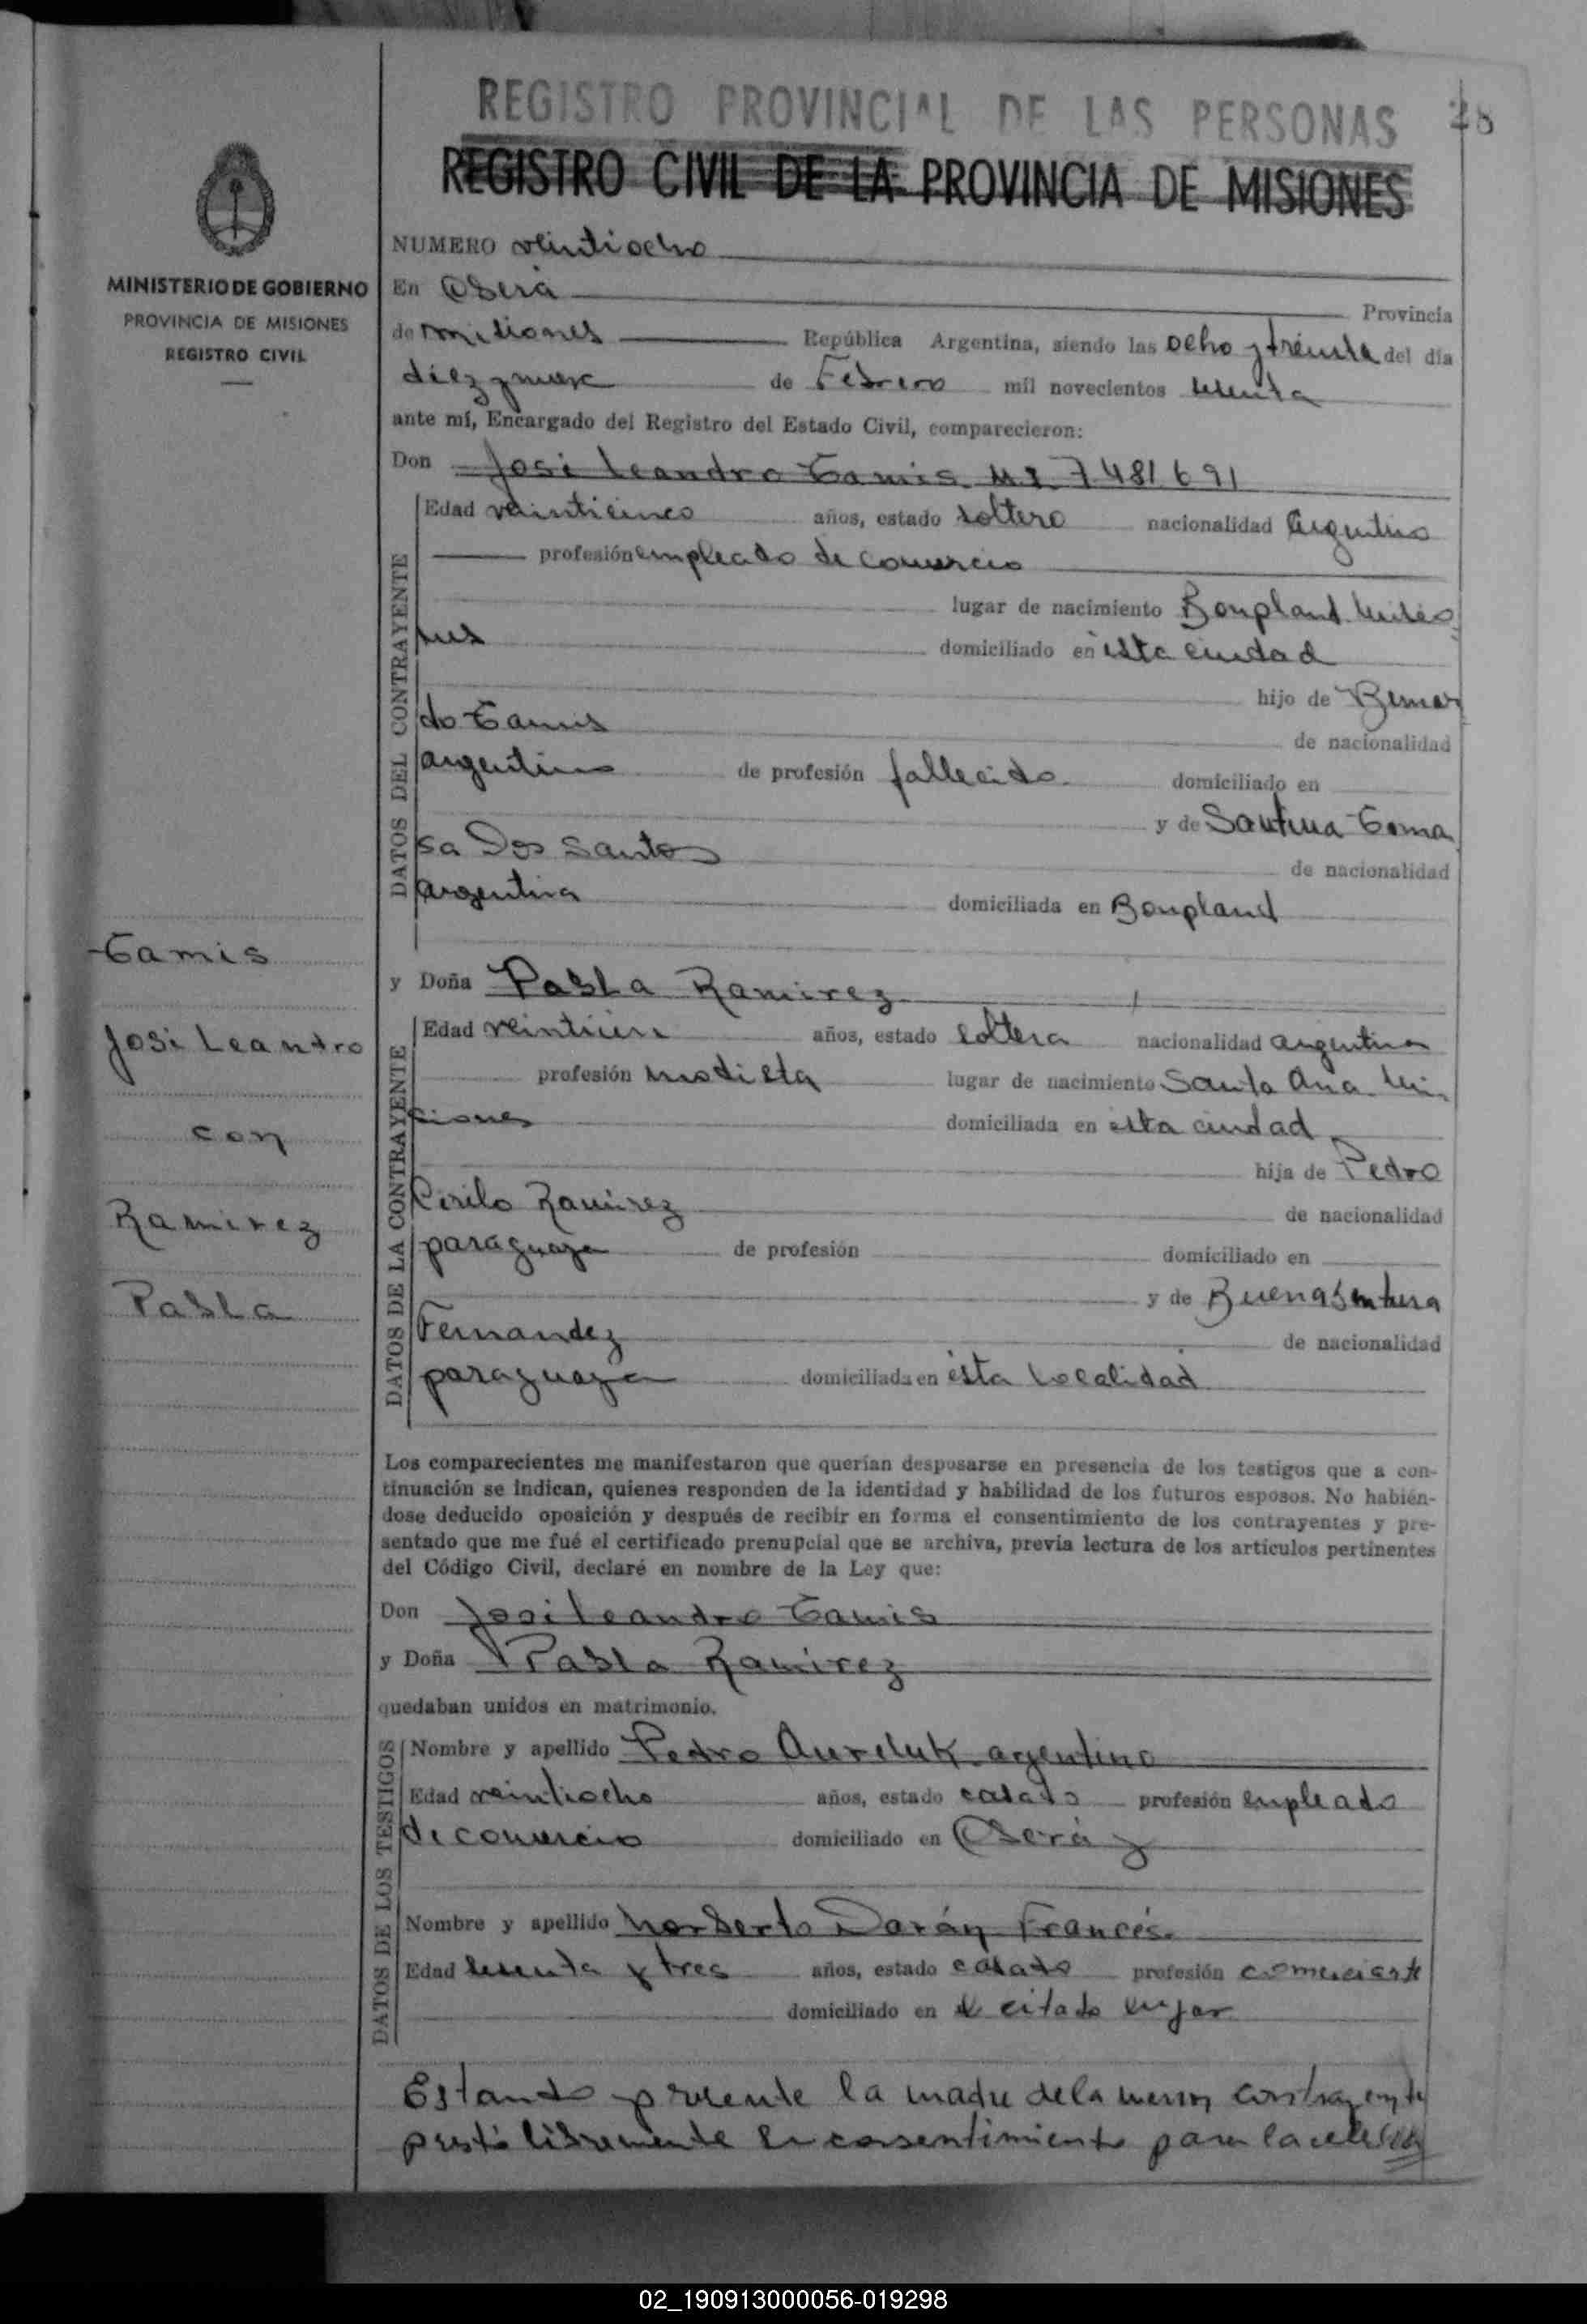 REGISTRO PROVINCIAL DE LAS PERSONAS 28
REGISTRO CIVIL DE LA PROVINCIA DE MISIONES
MINISTERIO DE GOBIERNO
PROVINCIA DE MISIONES
REGISTRO CIVIL
NUMERO veintiocho
En Oberá Provincia
de misiones República Argentina, siendo las ocho y treinta del día
diez y nueve de Febrero mil novecientos
ante mí, Encargado del Registro del Estado Civil, comparecieron:
Don José Leandro Tamis M I 7481691
DATOS DEL CONTRAYENTE
Edad veinticinco años, estado soltero nacionalidad argentino
profesión empleado de comercio
lugar de nacimiento Bonpland Misio
nes domiciliado en esta ciudad
hijo de Bernar
do Tamis de nacionalidad
argentino de profesión fallecido domiciliado en
y de Santina Toma
sa Dos Santos de nacionalidad
argentina domiciliada en Bonpland
Tamis
José Leandro
con
Ramirez
Pabla
y Doña Pabla Ramirez
DATOS DE LA CONTRAYENTE
Edad veintiun años, estado soltera nacionalidad argentina
profesión modista lugar de nacimiento Santa Ana Mi
siones domiciliada en esta ciudad
hija de Pedro
Cirilo Ramirez de nacionalidad
paraguaya de profesión domiciliado en
y de Buenabentura
Fernandez de nacionalidad
paraguaya domiciliada en ésta localidad
Los comparecientes me manifestaron que querían desposarse en presencia de los testigos que a con-
tinuación se indican, quienes responden de la identidad y habilidad de los futuros esposos. No habién-
dose deducido oposición y después de recibir en forma el consentimiento de los contrayentes y pre-
sentado que me fué el certificado prenupcial que se archiva, previa lectura de los artículos pertinentes
del Código Civil, declaré en nombre de la Ley que:
Don José Leandro Tamis
y Doña Pabla Ramirez
quedaban unidos en matrimonio.
DATOS DE LOS TESTIGOS
Nombre y apellido Pedro Aureluk argentino
Edad veintiocho años, estado casado profesión empleado
de comercio domiciliado en Oberá y
Nombre y apellido Norberto Darán Francés.
Edad sesenta y tres años, estado casado profesión comerciante
domiciliado en el citado lugar
Estando presente la madre de la menor contrayente
prestó libremente su consentimiento para la
02_190913000056-019298